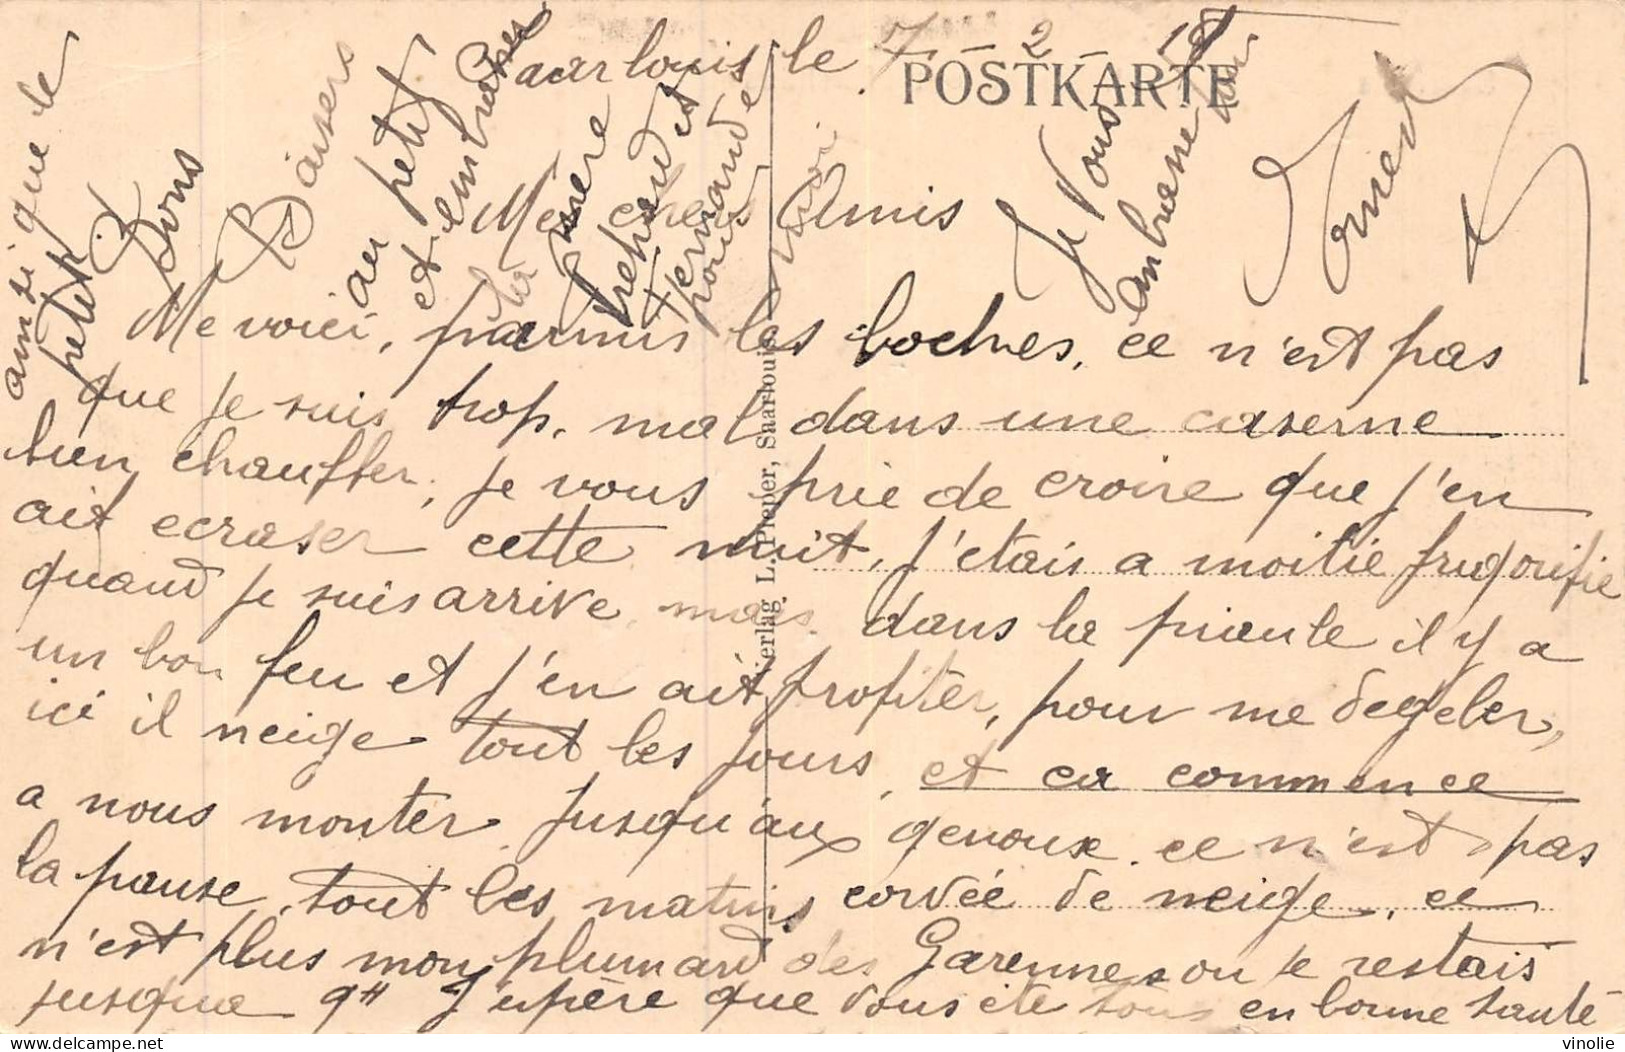 Saarlouis le 7 - 2 - 19
POSTKARTE
Mes chers Amis
Me voici, parmis les boches, ce n'est pas
que je suis trop, mal dans une caserne
bien chauffer, je vous prie de croire que j'en
ait ecraser cette nuit, j'etais a moitie frigorifie
quand je suis arrive mais dans la piaule il y a
un bon feu et j'en ait profiter, pour me degeler,
ici il neige tout les jours, et ca commence
a nous monter jusqu'aux genoux. ce n'est pas
la pause, tout les matins corvée de neige, ce
n'est plus mon plumard des Garennes ou je restais
jusqua 9H J'epère que vous ete tous en bonne santé
ainsi que le
petit
Baisers
au petit
et embrasser
la mère
et
Fernande
pour
moi
Je Vous
embrasse
Ernest
Verlag. L. Pieper, Saarlouis
vinolie